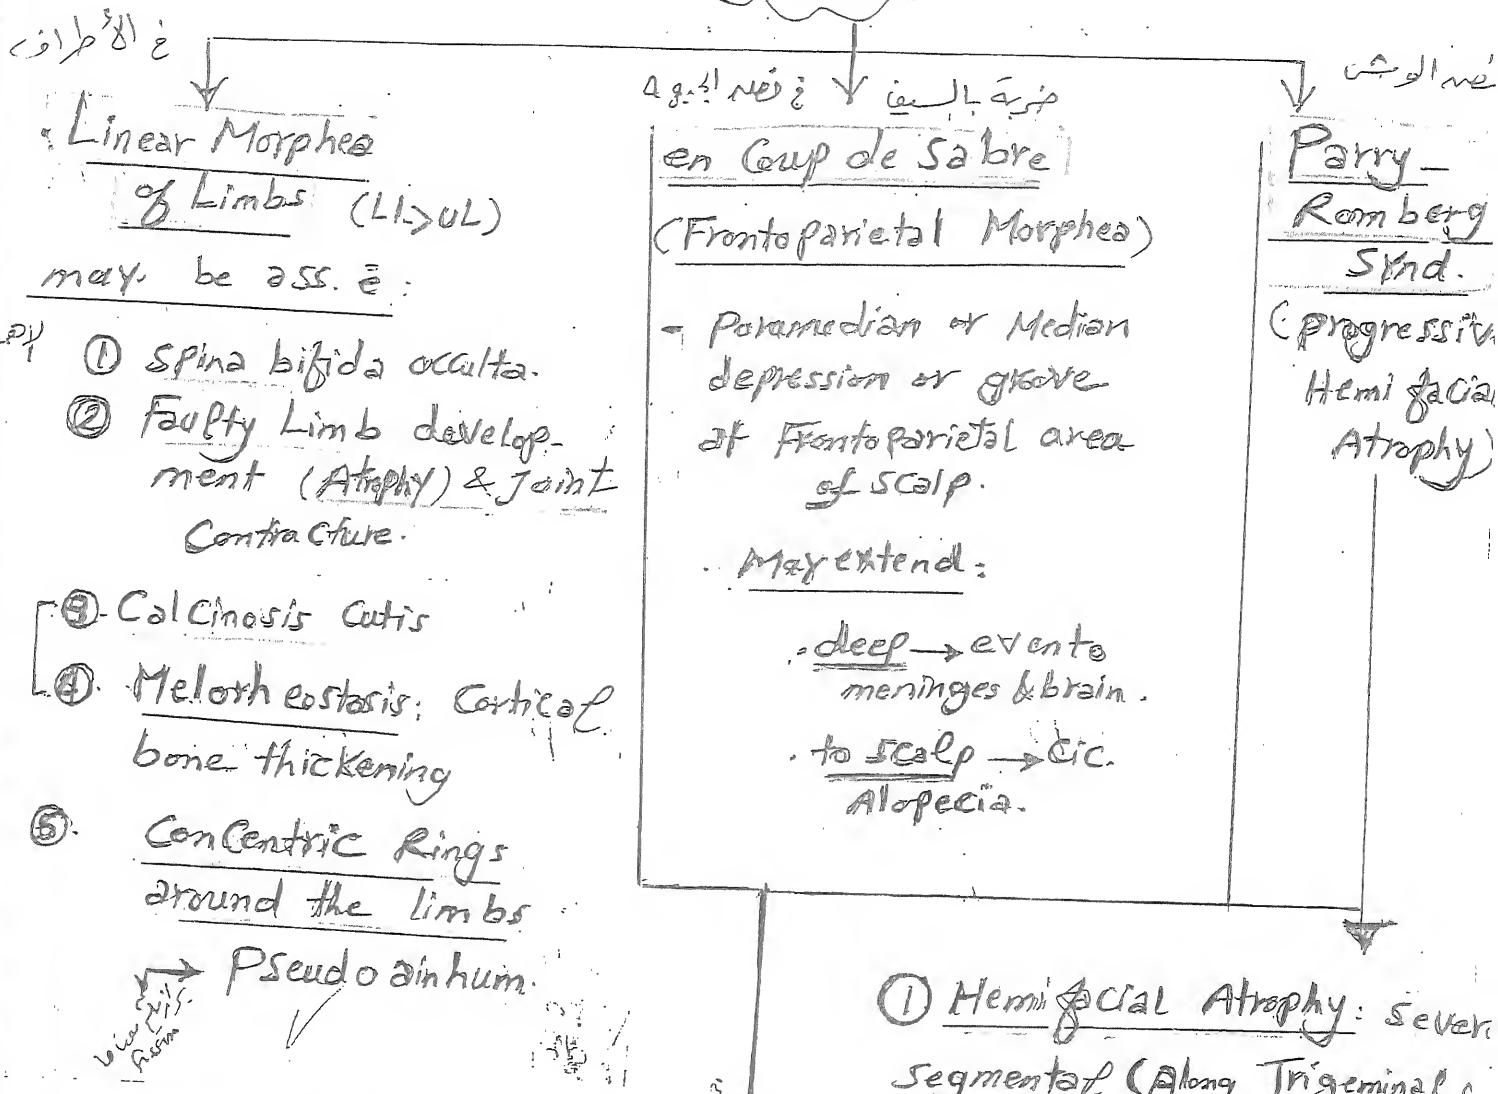 في الأطراف
Linear Morphea
of Limbs (LL>UL)
may be ass. c̄ :
① Spina bifida occulta.
② Faulty Limb develop-
ment (Atrophy) & Joint
Contracture.
③ Calcinosis Cutis
④ Melorheostasis: Cortical
bone thickening
⑤ Concentric Rings
around the limbs
→ Pseudoainhum.
ضربة بالسيف في نص الجبهة
en Coup de Sabre
(Frontoparietal Morphea)
- Paramedian or Median
depression or groove
at Frontoparietal area
of scalp.
. May extend:
. deep → even to
meninges & brain.
. to scalp → Cic.
Alopecia.
نص الوش
Parry -
Romberg
Synd.
(progressiv
Hemi facia
Atrophy)
① Hemifacial Atrophy: sever
segmental (Along Trigeminal